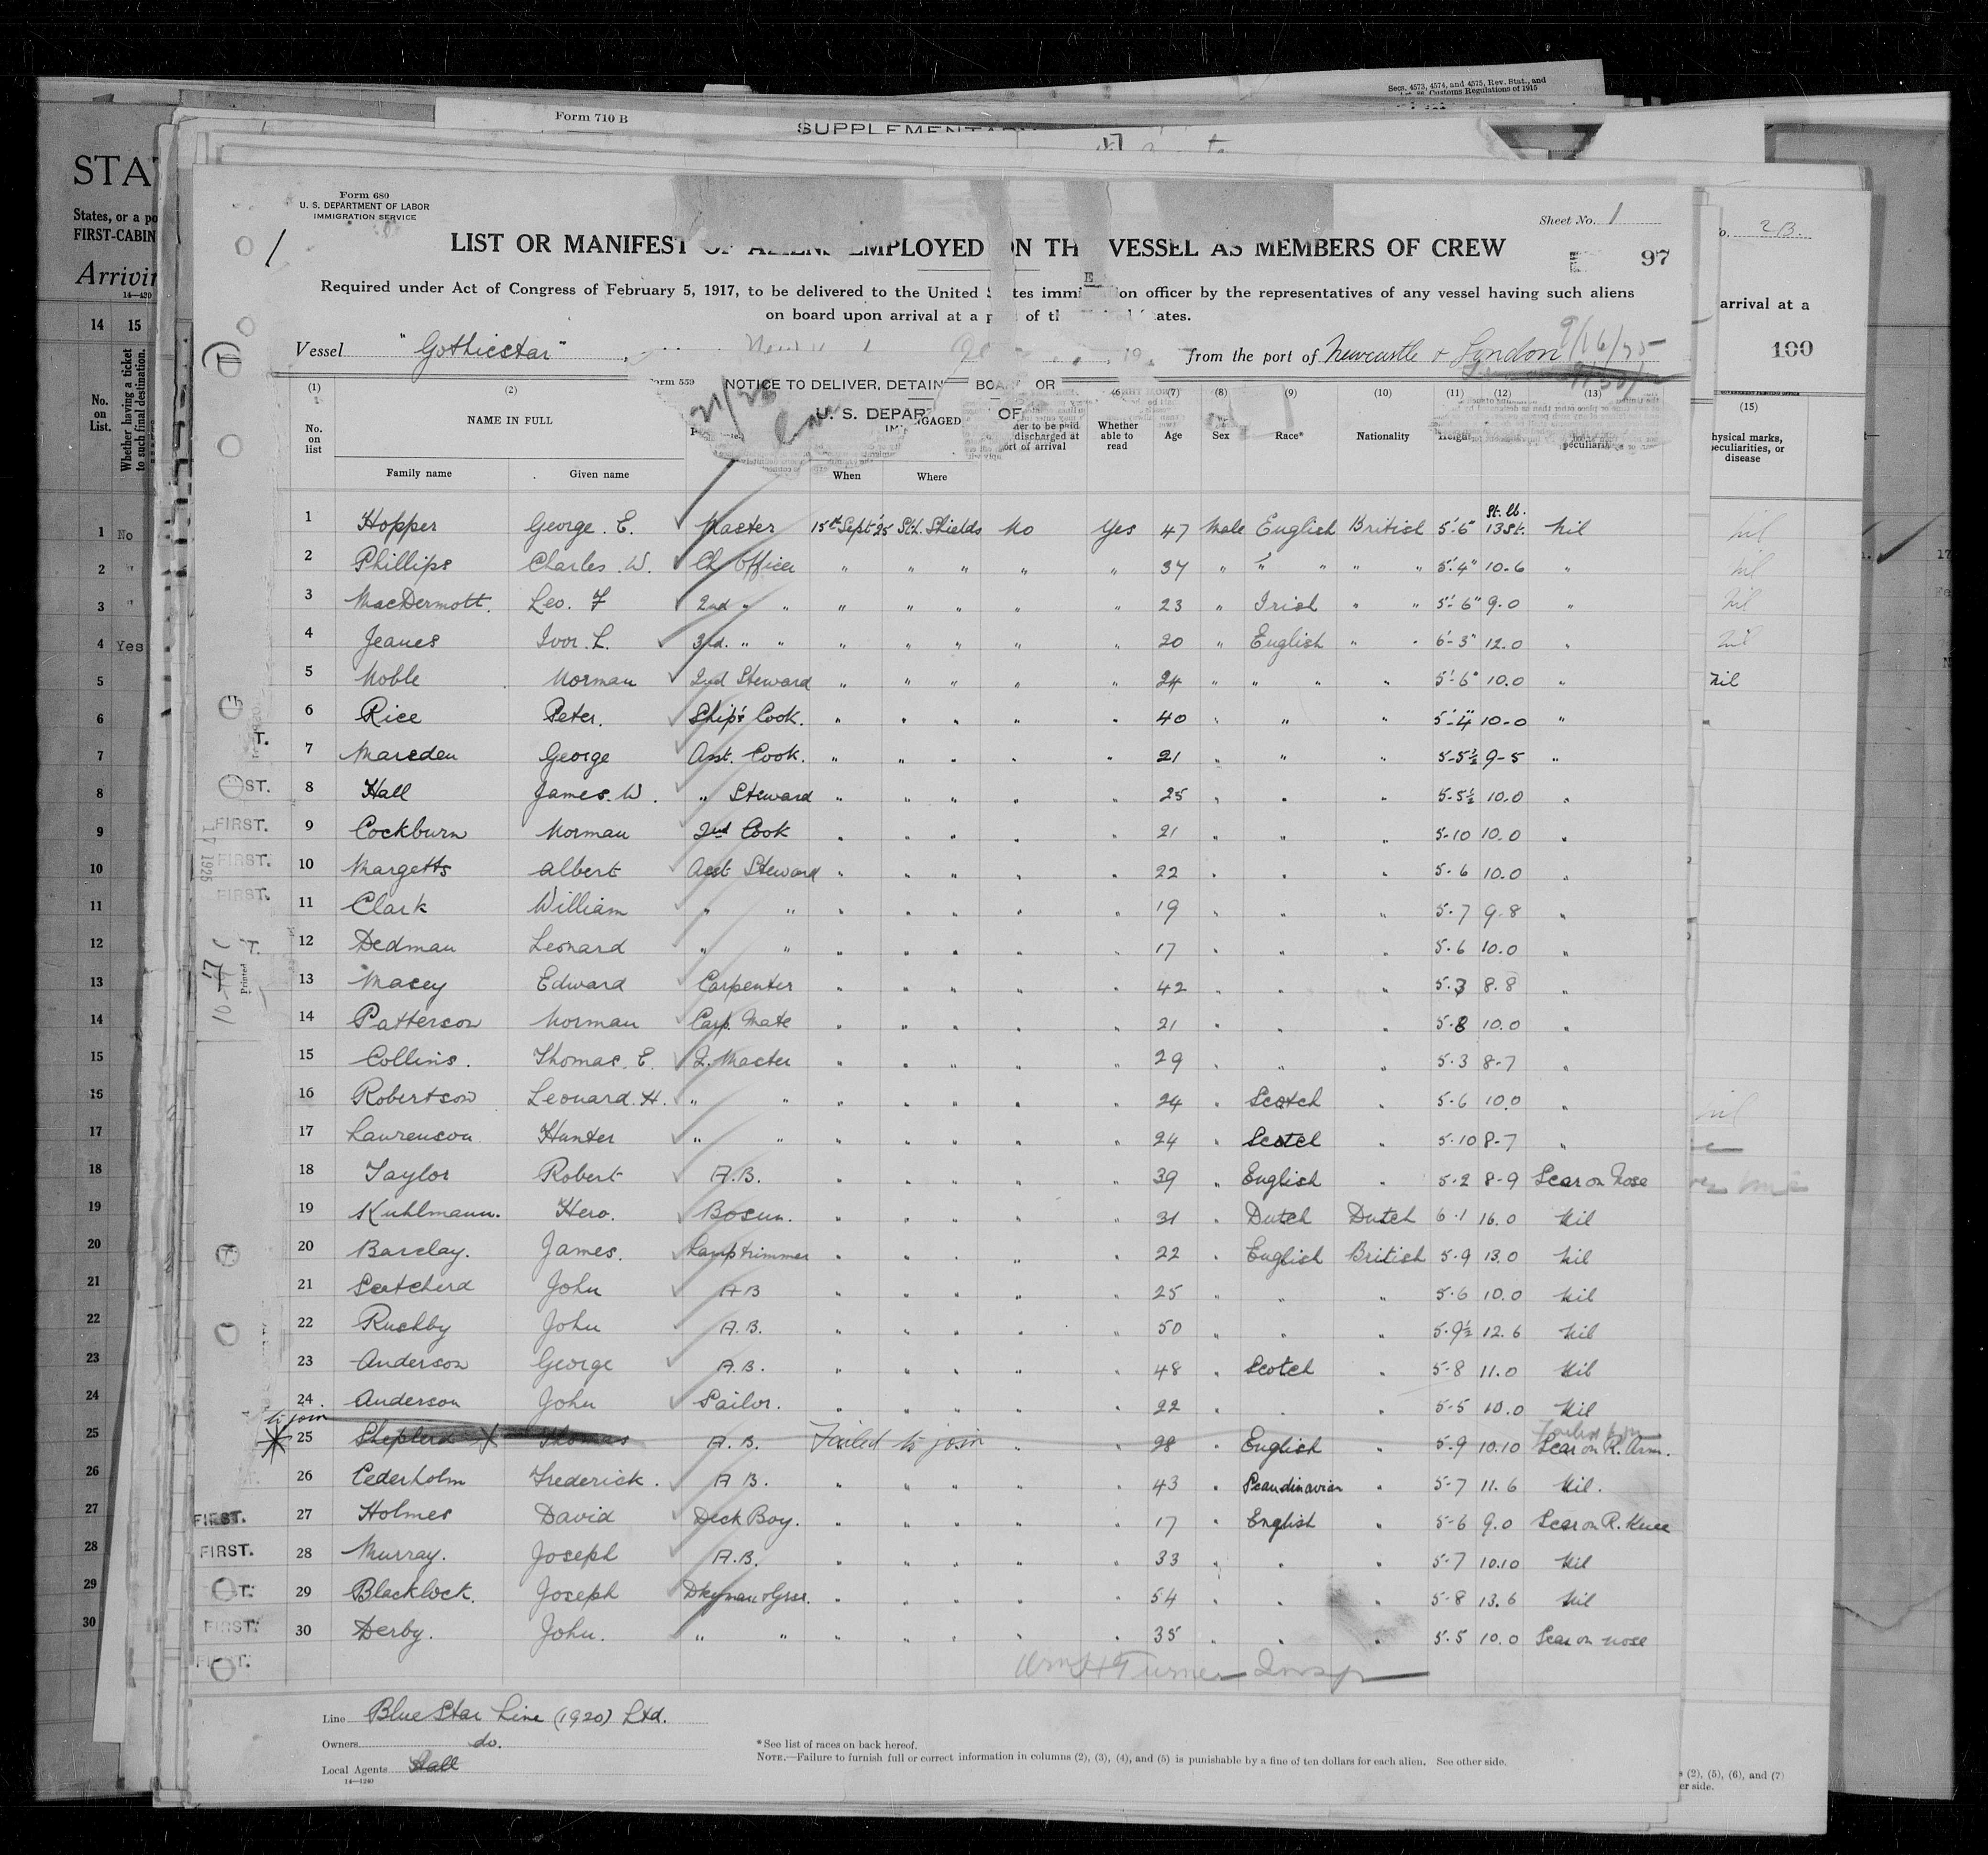 Secs. 4573, 4574, and 4575, Rev. Stat., and
Customs Regulations of 1915
Form 710 B
SUPPLEMENTARY
STAT
States, or a po
FIRST-CABIN
Arrivin
14—430
14 15
No. on List.
Whether having a ticket to such final destination.
1 No
2 "
3 "
4 Yes
5
6
7
8
9
10
11
12
13
14
15
16
17
18
19
20
21
22
23
24
25
26
27
28
29
30
Form 680
U. S. DEPARTMENT OF LABOR
IMMIGRATION SERVICE
Sheet No. 1
1
LIST OR MANIFEST OF ALIENS EMPLOYED ON TH VESSEL AS MEMBERS OF CREW
97
Required under Act of Congress of February 5, 1917, to be delivered to the United S tes immi on officer by the representatives of any vessel having such aliens
on board upon arrival at a p of th ates.
Vessel "Gothicstar" , 19 from the port of Newcastle & London 9/16/25
Form 559 NOTICE TO DELIVER, DETAIN BOA OR
U. S. DEPAR OF
(1) (2) (7) (8) (9) (10) (11) (12) (13)
No. on list NAME IN FULL GAGED Whether able to read Age Sex Race* Nationality Height peculiarities
Family name Given name When Where
1 Hopper George. E. Master 15th Sept '25 Sth. Shields No Yes 47 Male English British 5'-6" st. lb. 13 St. Nil
2 Phillips Charles. W. Ch Officer " " " " " 37 " " " " " 5'-4" 10-6 "
3 MacDermott. Leo. F 2nd " " " " " " " 23 " Irish " " 5'-6" 9.0 "
4 Jeanes Ivor. L. 3rd. " " " " " " " 20 " English " " 6'-3" 12.0 "
5 Noble Norman 2nd Steward " " " " " 24 " " " " 5'-6" 10.0 "
6 Rice Peter. Ship's Cook. " " " " " 40 " " " 5'-4" 10-0 "
7 Marsden George Asst. Cook. " " " " " 21 " " " 5-5½ 9-5 "
8 Hall James. W. " Steward " " " " " 25 " " " 5-5½ 10.0 "
9 Cockburn Norman 2nd Cook " " " " " 21 " " " 5-10 10.0 "
10 Margetts Albert Asst Steward " " " " " 22 " " " 5-6 10.0 "
11 Clark William " " " " " " " 19 " " " 5-7 9-8 "
12 Dedman Leonard " " " " " " " 17 " " " 5.6 10.0 "
13 Macey Edward Carpenter " " " " " 42 " " " 5.3 8.8 "
14 Patterson Norman Carp. Mate " " " " " 21 " " " 5.8 10.0 "
15 Collins. Thomas. E. Q. Master " " " " " 29 " " " 5.3 8-7 "
16 Robertson Leonard. H. " " " " " " " 24 " Scotch " 5-6 10.0 "
17 Laurenson Hunter " " " " " " " 24 " Scotch " 5.10 8-7 "
18 Taylor Robert A.B. " " " " " 39 " English " 5-2 8-9 Scar on Nose
19 Kuhlmann. Hero. Bosun. " " " " " 31 " Dutch Dutch 6.1 16.0 Nil
20 Barclay. James. Lamptrimmer " " " " " 22 " English British 5.9 13.0 Nil
21 Scatcherd John AB " " " " " 25 " " " 5.6 10.0 Nil
22 Rushby John A.B. " " " " " 50 " " " 5.9½ 12.6 Nil
23 Anderson George A.B. " " " " " 48 " Scotch " 5-8 11.0 Nil
24. Anderson John Sailor. " " " " " 22 " " " 5-5 10.0 Nil
to join
25 Shepherd Thomas A. B. Failed to join " " 28 " English " 5.9 10.10 Scar on R. Arm.
26 Cederholm Frederick. A B. " " " " " 43 " Scandinavian " 5-7 11.6 Nil.
27 Holmes David Deck Boy. " " " " " 17 " English " 5-6 9.0 Scar on R. Knee
28 Murray. Joseph A.B. " " " " " 33 " " " 5-7 10.10 Nil
29 Blacklock. Joseph Dkyman & Grsr. " " " " " 54 " " " 5-8 13.6 Nil
30 Derby. John. " " " " " " " 35 " " " 5.5 10.0 Scar on nose
Wm H Turner Insp
T.
ST.
FIRST.
FIRST.
FIRST.
1925
T.
Printed
FIRST.
FIRST.
T.
FIRST.
FIRST.
Line Blue Star Line (1920) Ltd.
Owners do.
Local Agents Hall
14—1240
* See list of races on back hereof.
NOTE.—Failure to furnish full or correct information in columns (2), (3), (4), and (5) is punishable by a fine of ten dollars for each alien. See other side.
o. 2B.
arrival at a
100
(15)
hysical marks,
eculiarities, or
disease
nil
nil
nil
nil
nil
nil
s (2), (5), (6), and (7)
er side.